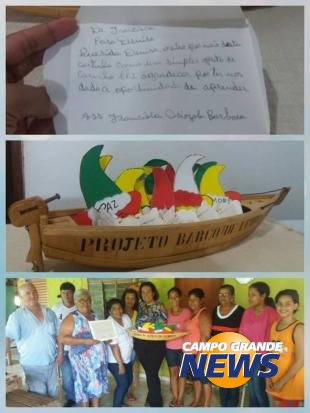 De Francisca
Para Denise
Querida Denise, venho por meio desta
cartinha como um simples gesto de
carinho lhe agradecer por ter nos
dado a oportunidade de aprender
Ass Francisca
PAZ
PROJETO BARCO DE
CAMPO GRANDE
NEWS